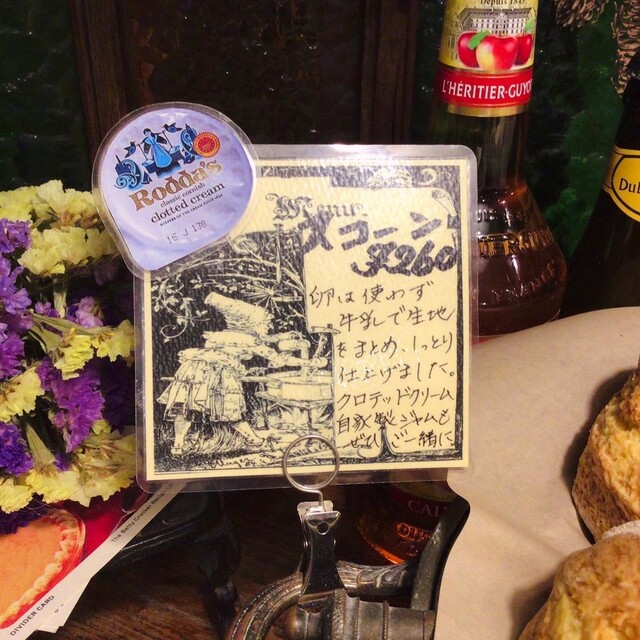 Depuis 1845
L'HÉRITIER-GUYOT
Rodda's
classic cornish
clotted cream
Menu
スコーン
¥260
卵は使わず
牛乳で生地
をまとめ、しっとり
仕上げました。
クロテッドクリーム
自家製ジャムも
ぜひご一緒に
DIVIDER CARD